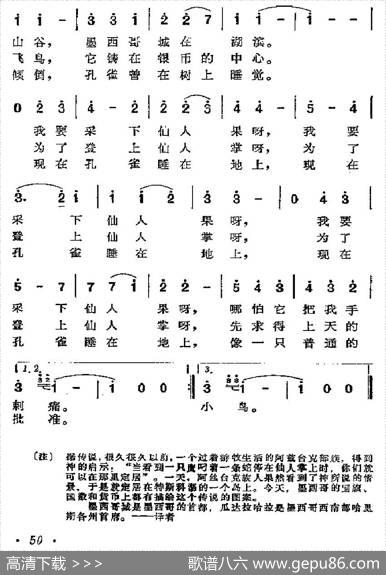 山谷, 墨西哥城在 湖滨。
飞鸟, 它铸在银币的 中心。
倾倒, 孔雀曾在树上 睡觉。
0 2 3 4 3 2 2 2 3 3 3 — 5 4
我要 采 下 仙人 果呀, 我要
为了 登 上 仙人 掌呀, 为了
现在 孔 雀 睡在 地上, 现在
采 下仙人 果呀, 我要
登 上仙人 掌呀, 为了
孔 雀睡在 地上, 现在
采 下仙人 果呀, 哪怕它 把我手
登 上仙人 掌呀, 先求得 上天的
孔 雀睡在 地上, 像一只 普通的
1.2. 3.
3 1 — 1 0 0 3 1 — 1 0 0
刺 痛。 小 鸟。
批 准。
〔注〕 据传说,很久很久以前,一个过着游牧生活的阿兹台克部族,得到
神的启示:“当看到一只鹰叼着一条蛇停在仙人掌上时,你们就
可以在那里定居”。一天,阿兹台克族人果然看到了神所说的情
景,于是就定居在特斯科湖的一个岛上。今天,墨西哥的国旗、
国徽和货币上都有描绘这个传说的图案。
墨西哥城是墨西哥的首都,瓜达拉哈拉是墨西哥西南部哈里
斯各州首府。——译者
· 50 ·
高清下载 >>> 歌谱八六 www.gepu86.com